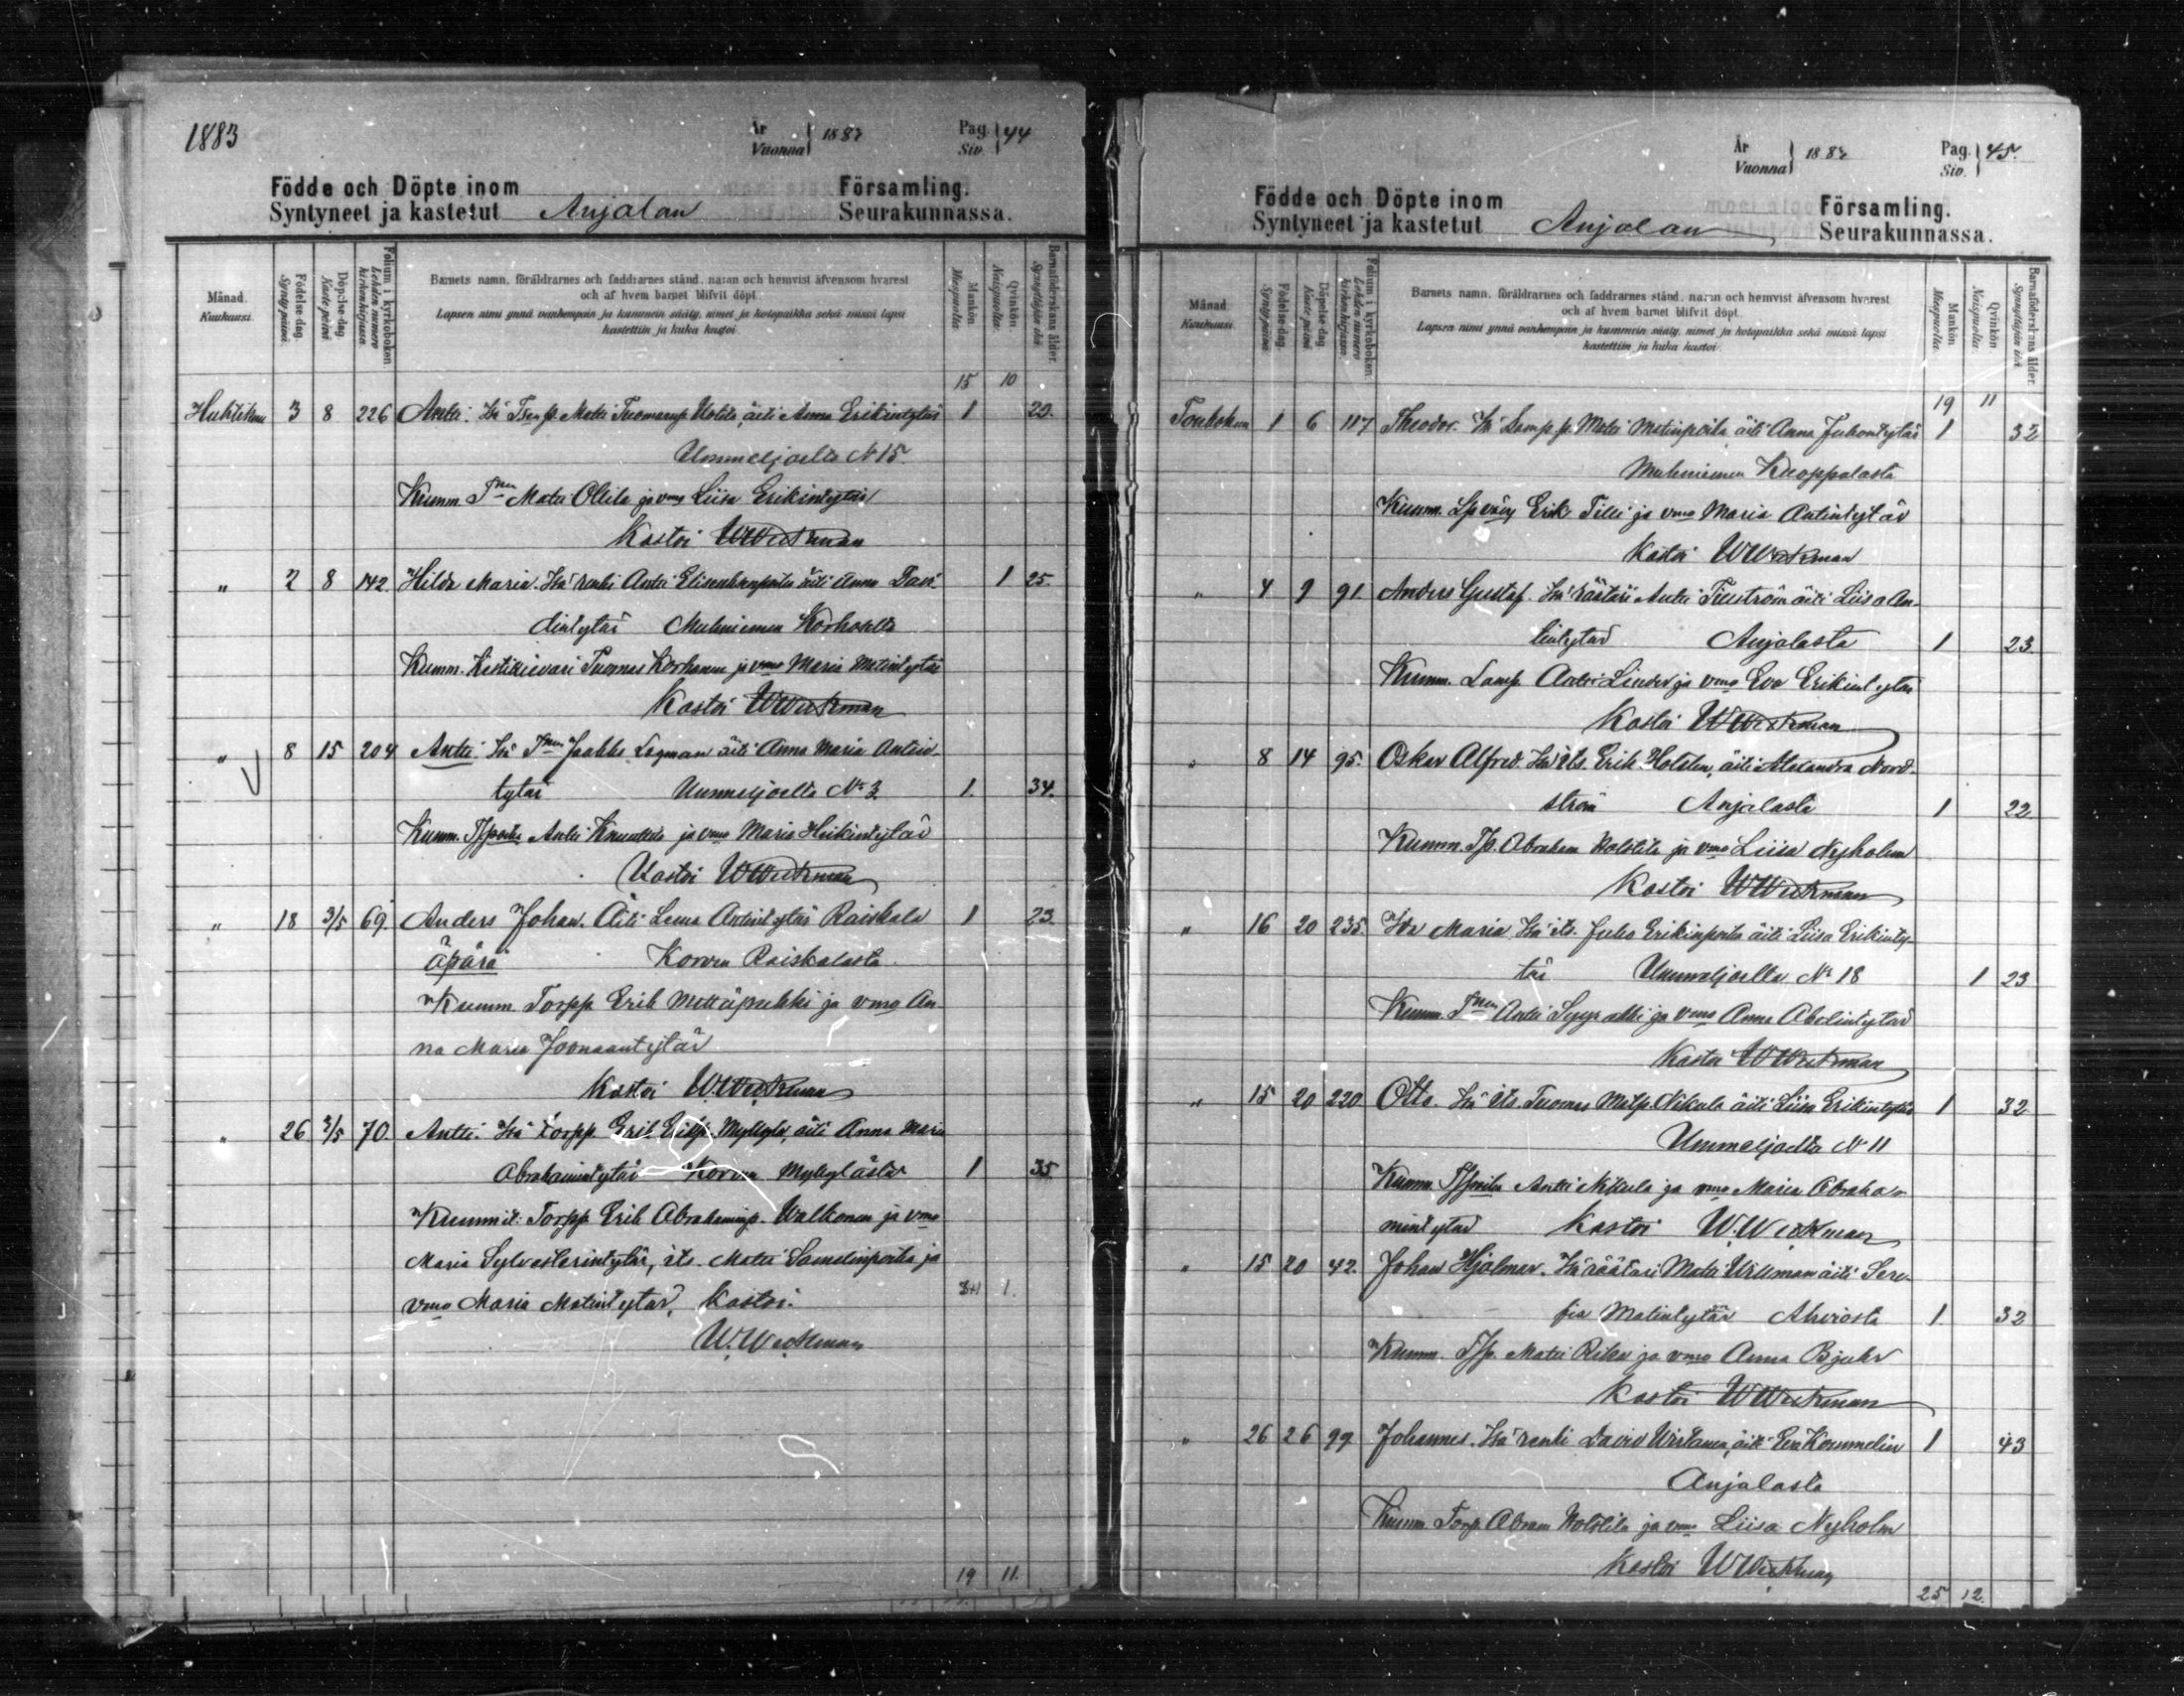 1883
År
Vuonna 1883
Pag. 44
Siv.
Födde och Döpte inom Församling.
Syntyneet ja kastetut Anjalan Seurakunnassa.
Månad. Kuukausi. Födelse dag. Synty päivä. Döpelse dag. Kaste päivä. Folium i kyrkoboken Lehden numero kirkonkirjassa. Barnets namn, föräldrarnes och faddrarnes stånd, namn och hemvist äfvensom hvarest Mankön Miespuolia. Qvinkön. Naispuolia. Barnaföderskans ålder. Synnyttäjän ikä.
och af hvem barnet blifvit döpt.
Lapsen nimi ynnä vanhempain ja kummein sääty, nimet ja kotopaikka sekä missä lapsi
kastettiin ja kuka kastoi.
15 10
Huhtikuu 3 8 226 Antti. Isä Matti Tuomanp. äiti Anna Erikintytär 1 23.
Ummeljoelta N 15.
Kumm. Matti Ollila ja vmo Liisa Erikintytär
Kastoi WWeckman
" 2 8 142. Hilda Maria. Isä renki Antti äiti Anna Davi- 1 25
dintytär Muhniemen Korholta
Kumm. Kestikievari Tuomas Korhonen ja vmo Maria Matintytär
Kastoi WWeckman
" 8 15 204 Antti. Isä Jaakko Lagman äiti Anna Maria Antin-
tytär Ummeljoelta No 3. 1. 34.
Kumm. Antti Knuuttila ja vmo Maria Heikintytär
Kastoi WWeckman
" 18 3/5 69. Anders Johan. Äiti Leena Antintytär Raiskala 1 23
äpärä Korven Raiskalasta
Kumm. Torpp. Erik Mettäpukki ja vmo An-
na Maria Joonaantytär
Kastoi W.Weckman
" 26 3/5 70. Antti. Isä torpp. Erik Erikp. Myllylä, äiti Anna Maria
Abrahamintytär Korven Myllylästä 1 35.
Kummit: Torpp. Erik Abrahaminp. Walkonen ja vmo
Maria Sylvesterintytär, its. Matti Samelinpoika ja
vmo Maria Matintytär, Kastoi. 3+1 1.
W.Weckman
19 11.
År
Vuonna 1883
Pag. 45.
Siv.
Födde och Döpte inom Församling.
Syntyneet ja kastetut Anjalan Seurakunnassa.
Månad. Kuukausi. Födelse dag. Synty päivä. Döpelse dag. Kaste päivä. Folium i kyrkoboken Lehden numero kirkonkirjassa. Barnets namn, föräldrarnes och faddrarnes stånd, namn och hemvist äfvensom hvarest Mankön Miespuolia. Qvinkön Naispuolia. Barnaföderskans ålder. Synnyttäjän ikä.
och af hvem barnet blifvit döpt.
Lapsen nimi ynnä vanhempain ja kummein sääty, nimet ja kotopaikka sekä missä lapsi
kastettiin ja kuka kastoi.
19 11
Toukokuu 1 6 117 Theodor. Isä Lamp. Matti Matinpoika äiti Anna Juhontytär 1 32
Muhniemen Kuoppalasta
Kumm. Erik Tilli ja vmo Maria Antintytär
Kastoi WWeckman
" 4 9 91. Anders Gustaf. Isä räätäri Antti äiti Liisa An-
tintytär Anjalasta 1 23.
Kumm. Lamp. Antti Linder ja vmo Eva Erikintytär
Kastoi WWeckman
" 8 14 95. Oskar Alfred. Isä its. Erik Holsten, äiti Alexandra Nord-
ström Anjalasta 1 22.
Kumm. Tp. Abraham Holstila ja vmo Liisa Nyholm
Kastoi WWeckman
" 16 20 235. Ida Maria. Isä its. Juho Erikinpoika äiti Liisa Erikinty-
tär Ummeljoelta No 18 1 23
Kumm. Antti ja vmo Anna Abelintytär
Kastoi WWeckman
" 15 20 220 Otto. Isä its. Tuomas Matp. Nikula äiti Liisa Erikintytär 1 32
Ummeljoelta N 11
Kumm. Antti Nikula ja vmo Maria Abraha-
mintytär Kastoi W.Weckman
" 15 20 42. Johan Hjalmar. Isä räätäri Matti Willman äiti Sere-
fia Matintytär Ahviosta 1. 32
Kumm. Tp. Matti ja vmo Anna
Kastoi WWeckman
" 26 26 99 Johannes. Isä renki David Wirtanen, äiti Eva Kommelin 1 43
Anjalasta
Kumm. Torp. Abram Holstila ja vmo Liisa Nyholm
Kastoi WWeckman
25 12.